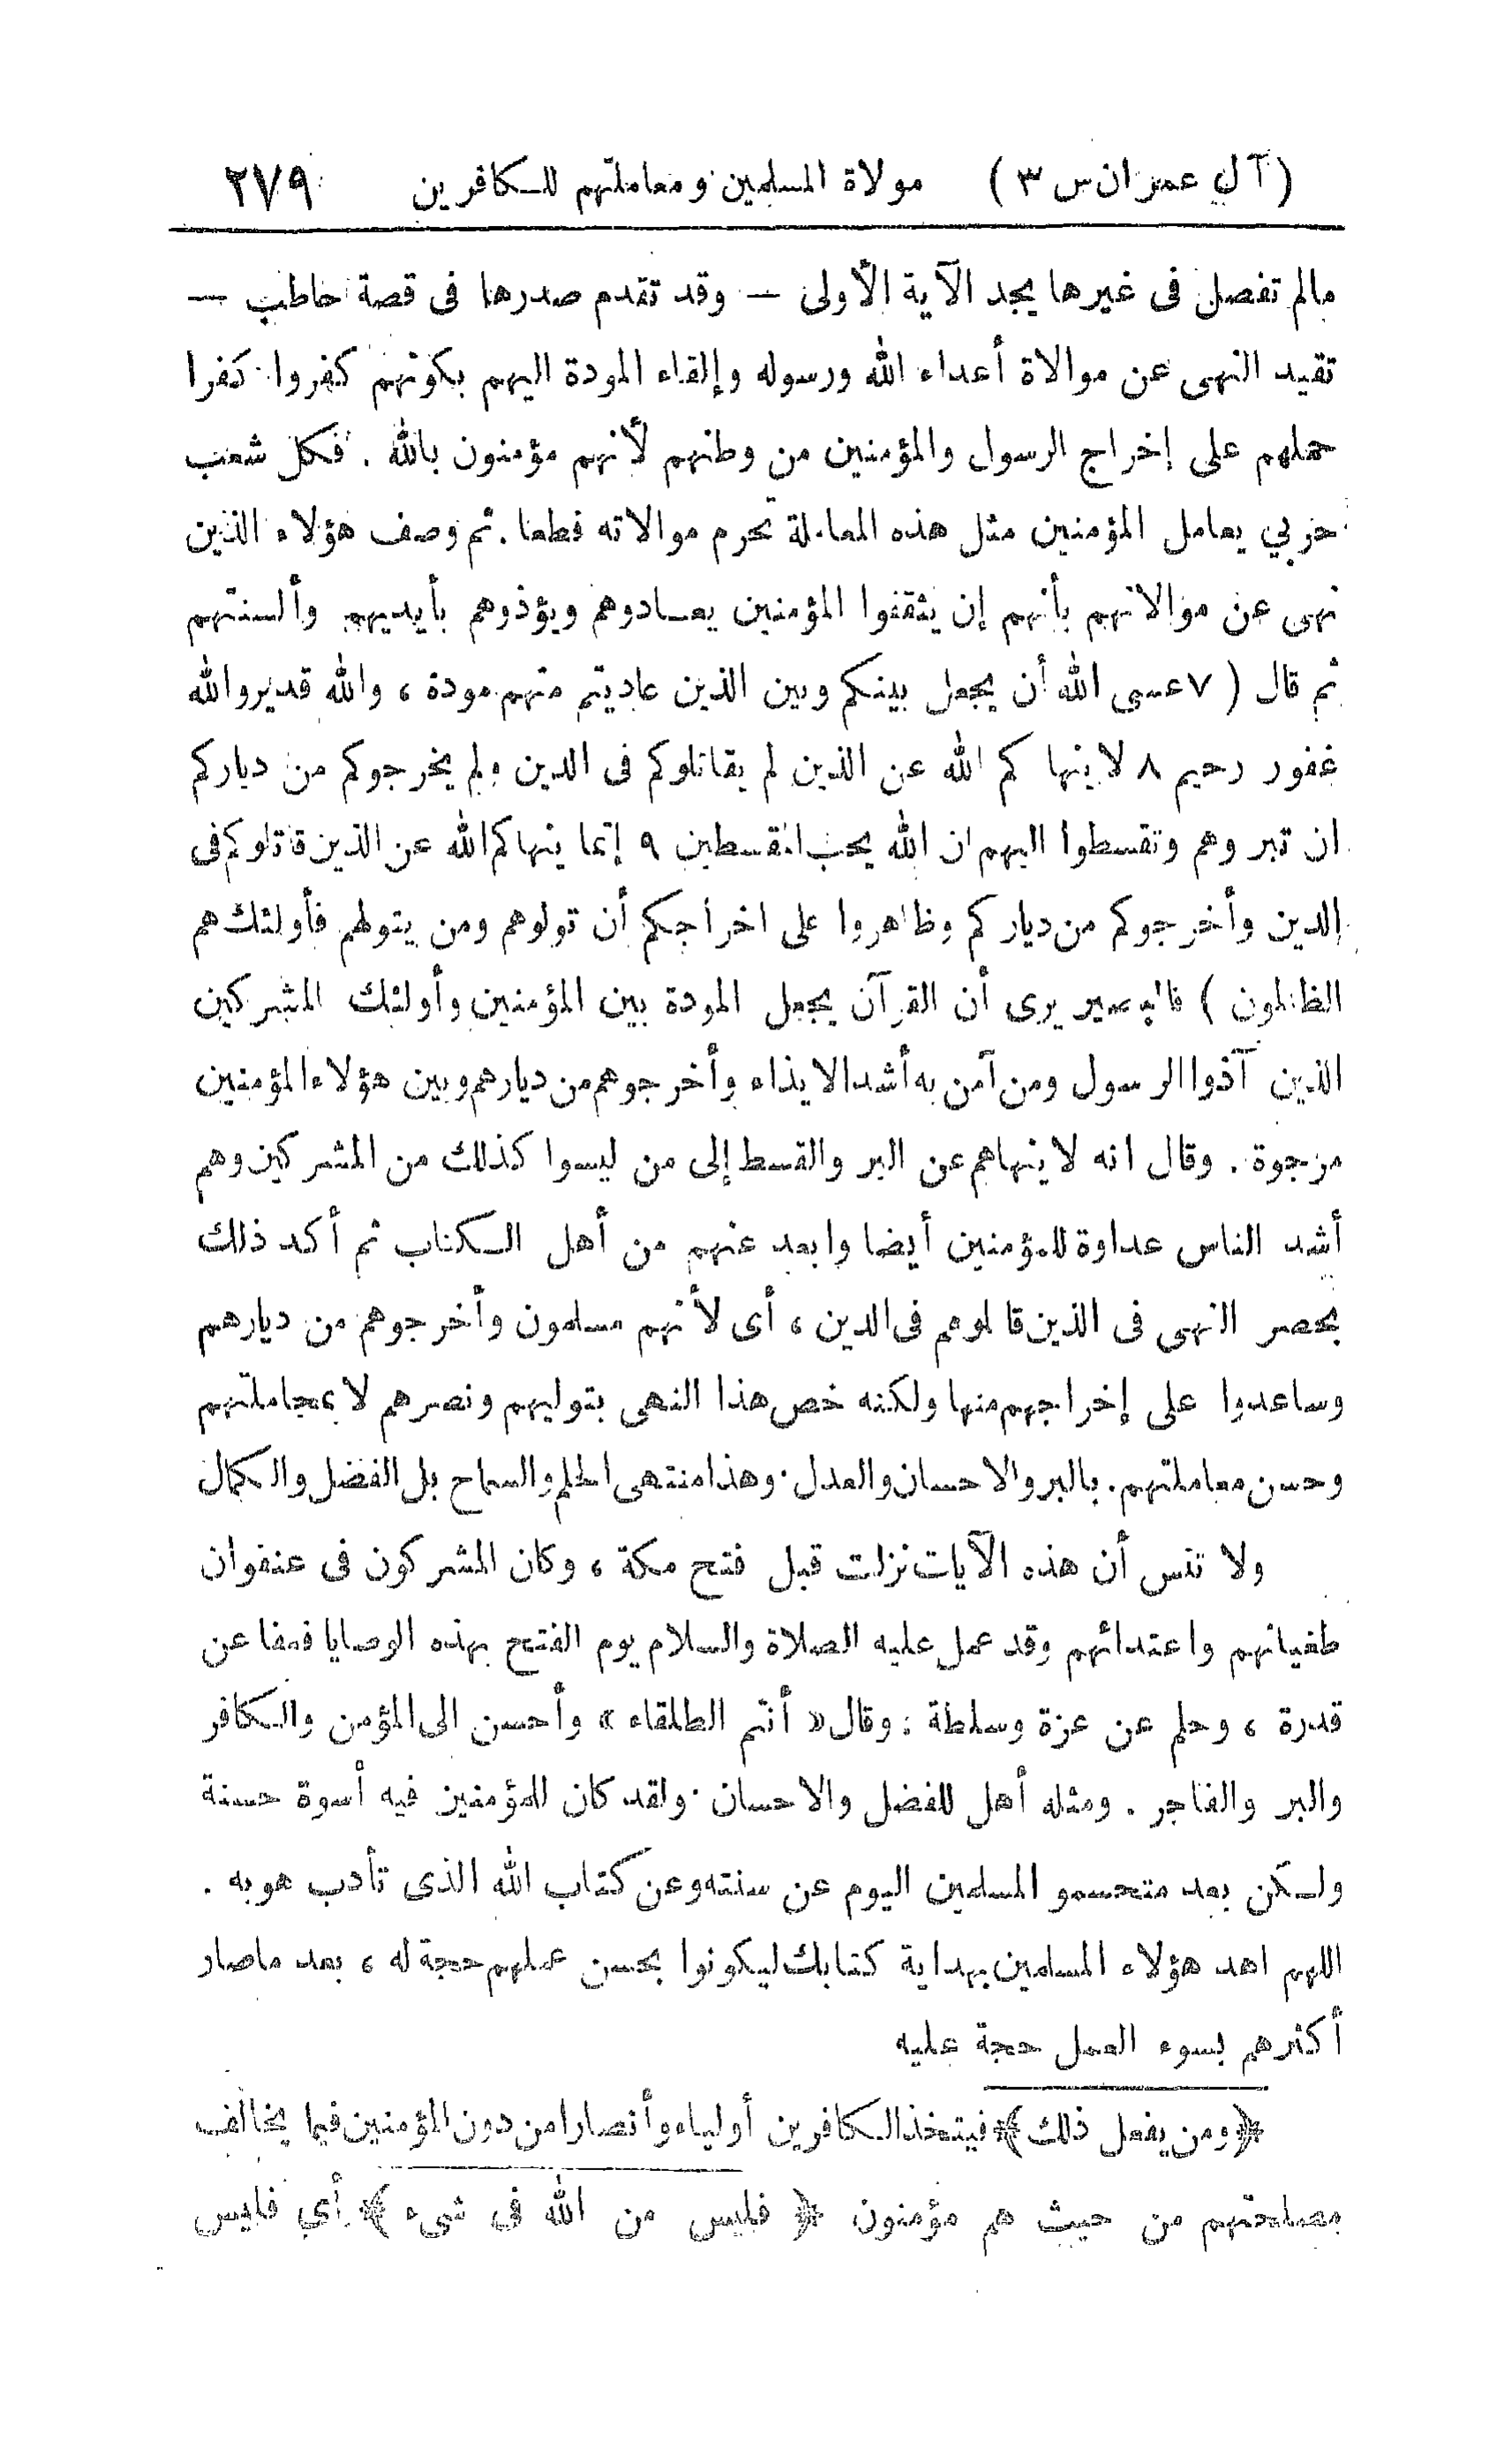 (آل عمران س ٣) مولاة المسلمين ومعاملتهم للكافرين ٢٧٩
مالم تفصل فى غيرها يجد الآية الأولى — وقد تقدم صدرها فى قصة حاطب —
تقيد النهى عن موالاة أعداء الله ورسوله وإلقاء المودة اليهم بكونهم كفروا كفرا
حملهم على إخراج الرسول والمؤمنين من وطنهم لأنهم مؤمنون بالله . فكل شعب
حربي يعامل المؤمنين مثل هذه المعاملة تحرم موالاته قطعا . ثم وصف هؤلاء الذين
نهى عن موالاتهم بأنهم إن يثقفوا المؤمنين يعادوهم ويؤذوهم بأيديهم وألسنتهم
ثم قال ( ٧ عسى الله أن يجعل بينكم وبين الذين عاديتم منهم مودة ، والله قدير والله
غفور رحيم ٨ لا ينها كم الله عن الذين لم يقاتلوكم فى الدين ولم يخرجوكم من دياركم
ان تبروهم وتقسطوا اليهم ان الله يحب المقسطين ٩ إنما ينهاكم الله عن الذين قاتلوكم فى
الدين وأخرجوكم من دياركم وظاهروا على اخراجكم أن تولوهم ومن يتولهم فأولئك هم
الظالمون ) فالبصير يرى أن القرآن يجعل المودة بين المؤمنين وأولئك المشركين
الذين آذوا الرسول ومن آمن به أشد الايذاء وأخرجوهم من ديارهم وبين هؤلاء المؤمنين
مرجوة . وقال انه لا ينهاهم عن البر والقسط إلى من ليسوا كذلك من المشركين وهم
أشد الناس عداوة للمؤمنين أيضا وابعد عنهم من أهل الكتاب ثم أكد ذلك
بحصر النهى فى الذين قاتلوهم فى الدين ، أى لأنهم مسلمون وأخرجوهم من ديارهم
وساعدوا على إخراجهم منها ولكنه خص هذا النهى بتوليهم ونصرهم لا بمجاملتهم
وحسن معاملتهم . بالبر والاحسان والعدل . وهذا منتهى الحلم والسماح بل الفضل والكمال
ولا تنس أن هذه الآيات نزلت قبل فتح مكة ، وكان المشركون فى عنفوان
طغيانهم واعتدائهم وقد عمل عليه الصلاة والسلام يوم الفتح بهذه الوصايا فعفا عن
قدرة ، وحلم عن عزة وسلطة : وقال « أنتم الطلقاء » وأحسن الى المؤمن والكافر
والبر والفاجر . ومثله أهل للفضل والاحسان . ولقد كان للمؤمنين فيه أسوة حسنة
ولكن بعد متحسمو المسلمين اليوم عن سنته وعن كتاب الله الذى تأدب هو به .
اللهم اهد هؤلاء المسلمين بهداية كتابك ليكونوا بحسن عملهم حجة له ، بعد ما صار
أكثرهم بسوء العمل حجة عليه
﴿ ومن يفعل ذلك ﴾ فيتخذ الكافرين أولياء وأنصارا من دون المؤمنين فيما يخالف
مصلحتهم من حيث هم مؤمنون ﴿ فليس من الله فى شىء ﴾ أي فليس